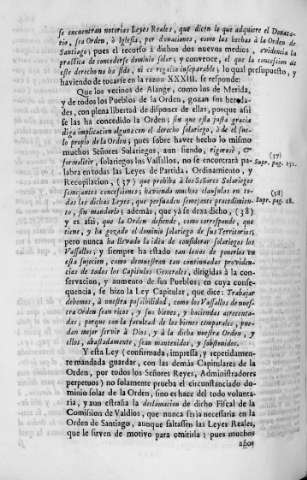 se encuentran notorias Leyes Reales, que dicen lo que adquiere el Donata-
rio, sea Orden, ò Iglesia, por donaciones, como las hechas à la Orden de
Santiago; pues el recurso à dichos dos nuevos medios, evidencia la
practica de concederse dominio solar, y convence, el que la concesion de
este derecho no ha sido, ni es regalia inseparable; lo qual presupuesto, y
haviendo de tocarse en la razon XXXIII. se responde:
Que los vecinos de Alange, como los de Merida,
y de todos los Pueblo de la Orden, gozan sus hereda-
des, con plena libertad de disponer de ellas, porque assi
se las ha concedido la Orden; sin que esta passe gracia
diga implicacion alguna con el derecho solariego, ò de el sue-
lo proprio de la Orden; pues sobre haver hecho lo mismo
muchos Señores Solariegos, aun siendo,
solariegos los Vassallos, no se encontrarà pa-
labra en todas las Leyes de Partida, Ordenamiento, y
Recopilacion, (37) que prohiba à los Señores Solariegos
semejantes concessiones; haviendo muchas clausulas en to-
das las dichas Leyes, que persuaden semejantes procedimien-
tos, sin mandarlo; además, que yà se dexa dicho, (38)
y es assi, que la Orden defiende, como corresponde, que
tiene, y ha gozado el dominio solariego de sus Territorios;
pero nunca ha llevado la idèa de considerar solariegos los
Vassallos, y siempre ha estado tan lexos de ponerlos en
esta sujecion, como demuestran las continuadas providen-
cias de todos los Capitulos Generales, dirigidas à la con-
servacion, y aumento de sus Pueblos; en cuya conse-
quencia, se hizo la Ley Capitular, que dice: Trabajar
debemos, à nuestra possibilidad, como los Vassallos de nues-
tra Orden sean ricos, y sus bienes, y haciendas acrecenta-
das, porque con la facultad de los bienes temporales, pue-
dan mejor servir à Dios, y à la dicha nuestra Orden, y
ellos, abastadamente, sean mantenidos, y sostenidos.
Y esta Ley (confirmada, impressa, y repetidamen-
te mandada guardar, con las demás Capitulares de la
Orden, por todos los Señores Reyes, Administradores
perpetuos) no solamente prueba el circunstanciado do-
minio solar de la Orden, sino es hace del todo volunta-
ria, y aun estraña la declinacion de dicho Fiscal de la
Comission de Valdios, que nunca seria necessaria en la
Orden de Santiago, aunque faltassen las Leyes Reales,
que le sirven de motivo para omitirla; pues muchos
años
(37)
Supr. pag. 151.
(38)
Supr. pag. 18.